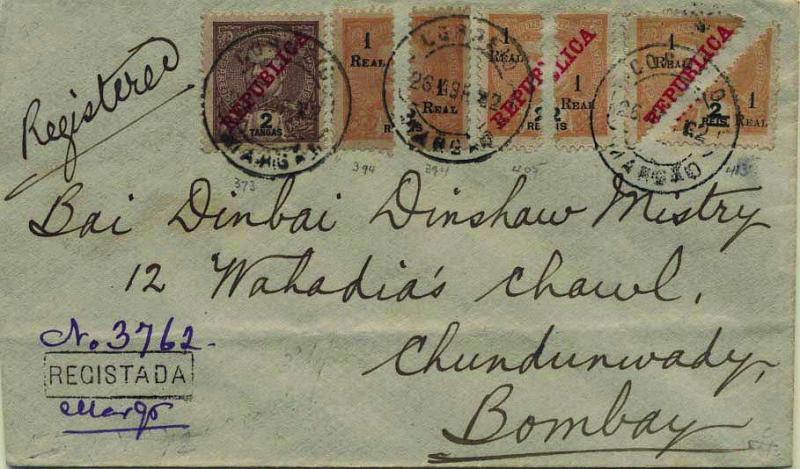 Registered
REPUBLICA
2
TANGAS
1
REAL
R
1
REAL
1
REAL
REPUBLICA
2
REIS
1
REAL
1
REAL
REPUBLICA
2
REIS
1
REAL
MARGÃO
26 ABR 12
MARGÃO
26
12
MARGÃO
373
394
394
405
Bai Dinbai Dinshaw Mistry
12 Wahadia's chawl,
Chundunwady,
Bombay
No. 3762.
REGISTADA
Margão